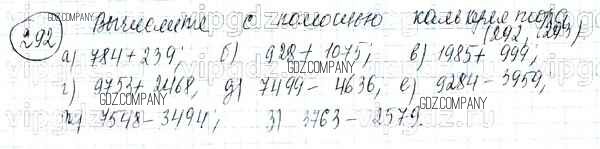 292 Вычислите с помощью калькулятора (292, 293)
а) 784 + 239; б) 922 + 1075; в) 1985 + 999;
г) 9753 + 2468, д) 7499 - 4636, е) 9284 - 3959,
ж) 7548 - 3494; з) 3763 - 2579.
GDZ.COMPANY
GDZ.COMPANY
GDZ.COMPANY
GDZ.COMPANY